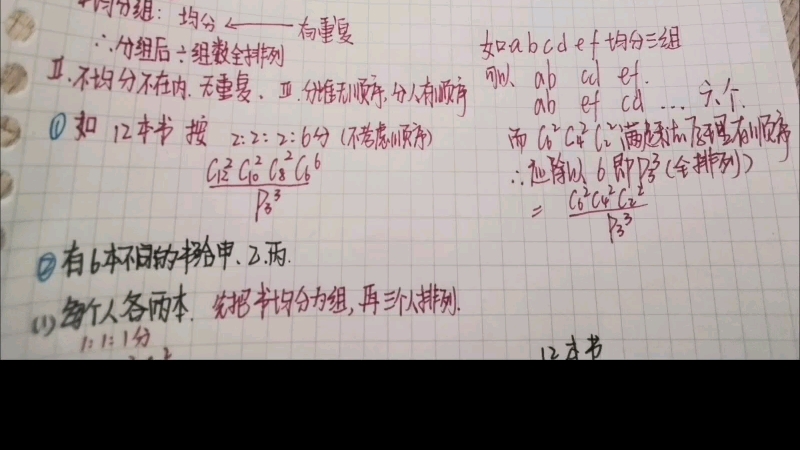 均分组: 均分 ← 有重复
∴分组后÷组数全排列
Ⅱ.不均分不在内.无重复. Ⅲ.分堆无顺序,分人有顺序
① 如 12本书 按 2:2:2:6分 (不考虑顺序)
C₁₂² C₁₀² C₈² C₆⁶
P₃³
如 a b c d e f 均分三组
可以 ab cd ef.
ab ef cd … 六个.
而 C₆² C₄² C₂² 满足乘法原理是有顺序
∴应除以 6 即 P₃³ (全排列)
= C₆² C₄² C₂²
P₃³
② 有6本不同的书给甲、乙、丙.
(1) 每个人各两本. 先把书均分为组,再三个人排列.
1:1:1分
12本书